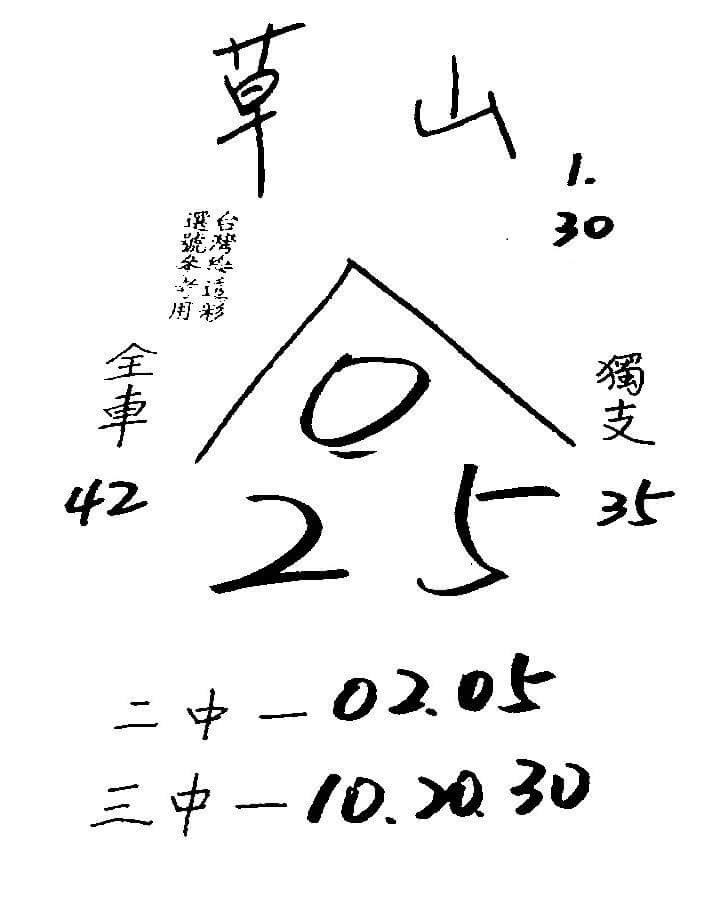 草山
1.
30
台灣樂透彩
選號參考用
全車
42
獨支
35
0
2 5
二中－02.05
三中－10.20.30